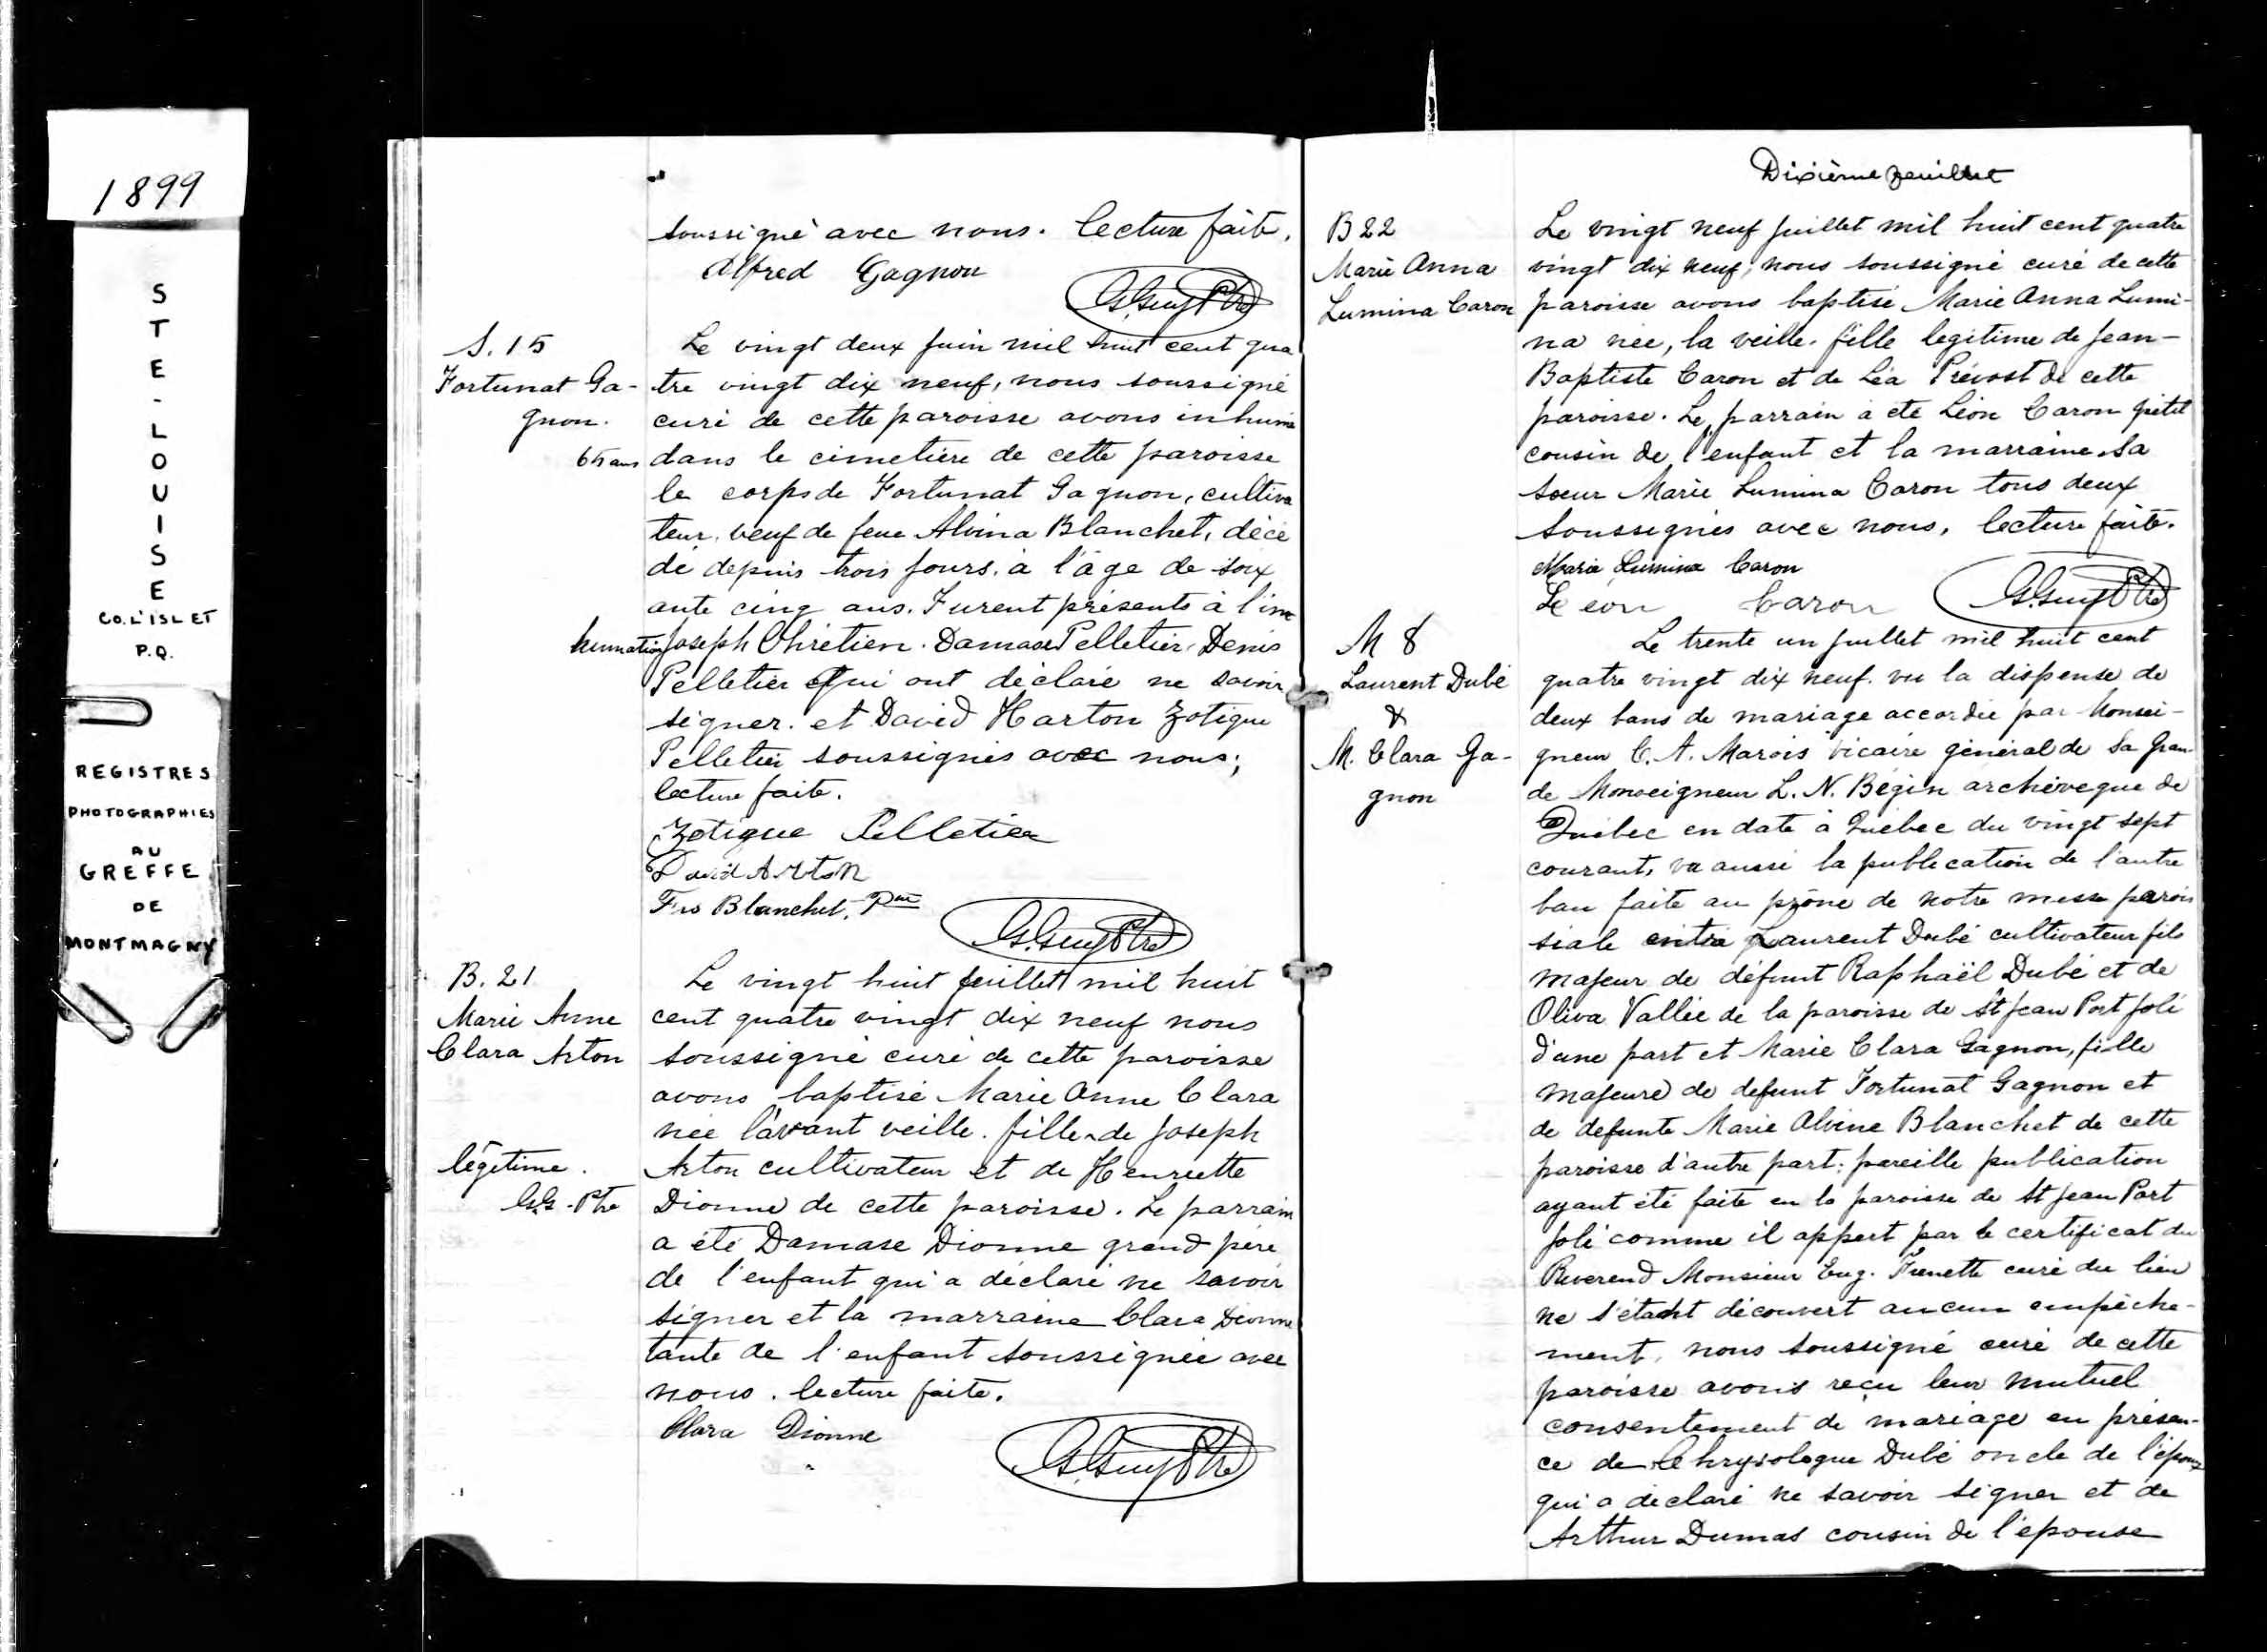 1899
STE-LOUISE
CO. L'ISLET
P.Q.
REGISTRES
PHOTOGRAPHIES
AU
GREFFE
DE
MONTMAGNY
soussigné avec nous. Lecture faite.
Alfred Gagnon
G. Guy Ptre
S. 15
Fortunat Ga-
gnon.
65 ans
Le vingt deux juin mil huit cent qua
tre vingt dix neuf, nous soussigné
curé de cette paroisse avons inhumé
dans le cimetière de cette paroisse
le corps de Fortunat Gagnon, cultiva
teur, veuf de feue Alvina Blanchet, décé
dé depuis trois jours, à l'âge de soix
ante cinq ans. Furent présents à l'in
humation Joseph Chrétien. Damase Pelletier, Denis
Pelletier qui ont déclaré ne savoir
signer. et David Harton Zotique
Pelletier soussignés avec nous;
lecture faite.
Zotique Pelletier
David Arton
Frs Blanchet, Ptre
G. Guy Ptre
B. 21
Marie Anne
Clara Arton
légitime.
G.G. Ptre
Le vingt huit juillet mil huit
cent quatre vingt dix neuf nous
soussigné curé de cette paroisse
avons baptisé Marie Anne Clara
née l'avant veille. fille de Joseph
Arton cultivateur et de Henriette
Dionne de cette paroisse. Le parrain
a été Damase Dionne grand père
de l'enfant qui a déclaré ne savoir
signer et la marraine Clara Dionne
tante de l'enfant soussignée avec
nous. lecture faite.
Clara Dionne
G. Guy Ptre
Dixième feuillet
B 22
Marie Anna
Lumina Caron
Le vingt neuf juillet mil huit cent quatre
vingt dix neuf, nous soussigné curé de cette
paroisse avons baptisé Marie Anna Lumi-
na née, la veille. fille légitime de Jean-
Baptiste Caron et de Léa Prévost de cette
paroisse. Le parrain a été Léon Caron petit
cousin de l'enfant et la marraine sa
soeur Marie Lumina Caron tous deux
soussignés avec nous, lecture faite.
Marie Lumina Caron
Léon Caron
G. Guy Ptre
M 8
Laurent Dubé
&
M. Clara Ga-
gnon
Le trente un juillet mil huit cent
quatre vingt dix neuf. vu la dispense de
deux bans de mariage accordée par Monsei-
gneur C. A. Marois vicaire général de Sa Gran
de Monseigneur L. N. Bégin archevêque de
Québec en date à Québec du vingt sept
courant, vu aussi la publication de l'autre
ban faite au prône de notre messe parois
siale entre Laurent Dubé cultivateur fils
majeur de défunt Raphaël Dubé et de
Oliva Vallée de la paroisse de St Jean Port Joli
d'une part et Marie Clara Gagnon, fille
majeure de défunt Fortunat Gagnon et
de défunte Marie Alvine Blanchet de cette
paroisse d'autre part; pareille publication
ayant été faite en la paroisse de St Jean Port
Joli comme il appert par le certificat du
Révérend Monsieur Eug. Frenette curé du lieu
ne s'étant découvert aucun empêche-
ment, nous soussigné curé de cette
paroisse avons reçu leur mutuel
consentement de mariage en présen-
ce de Chrysologue Dubé oncle de l'époux
qui a déclaré ne savoir signer et de
Arthur Dumas cousin de l'épouse